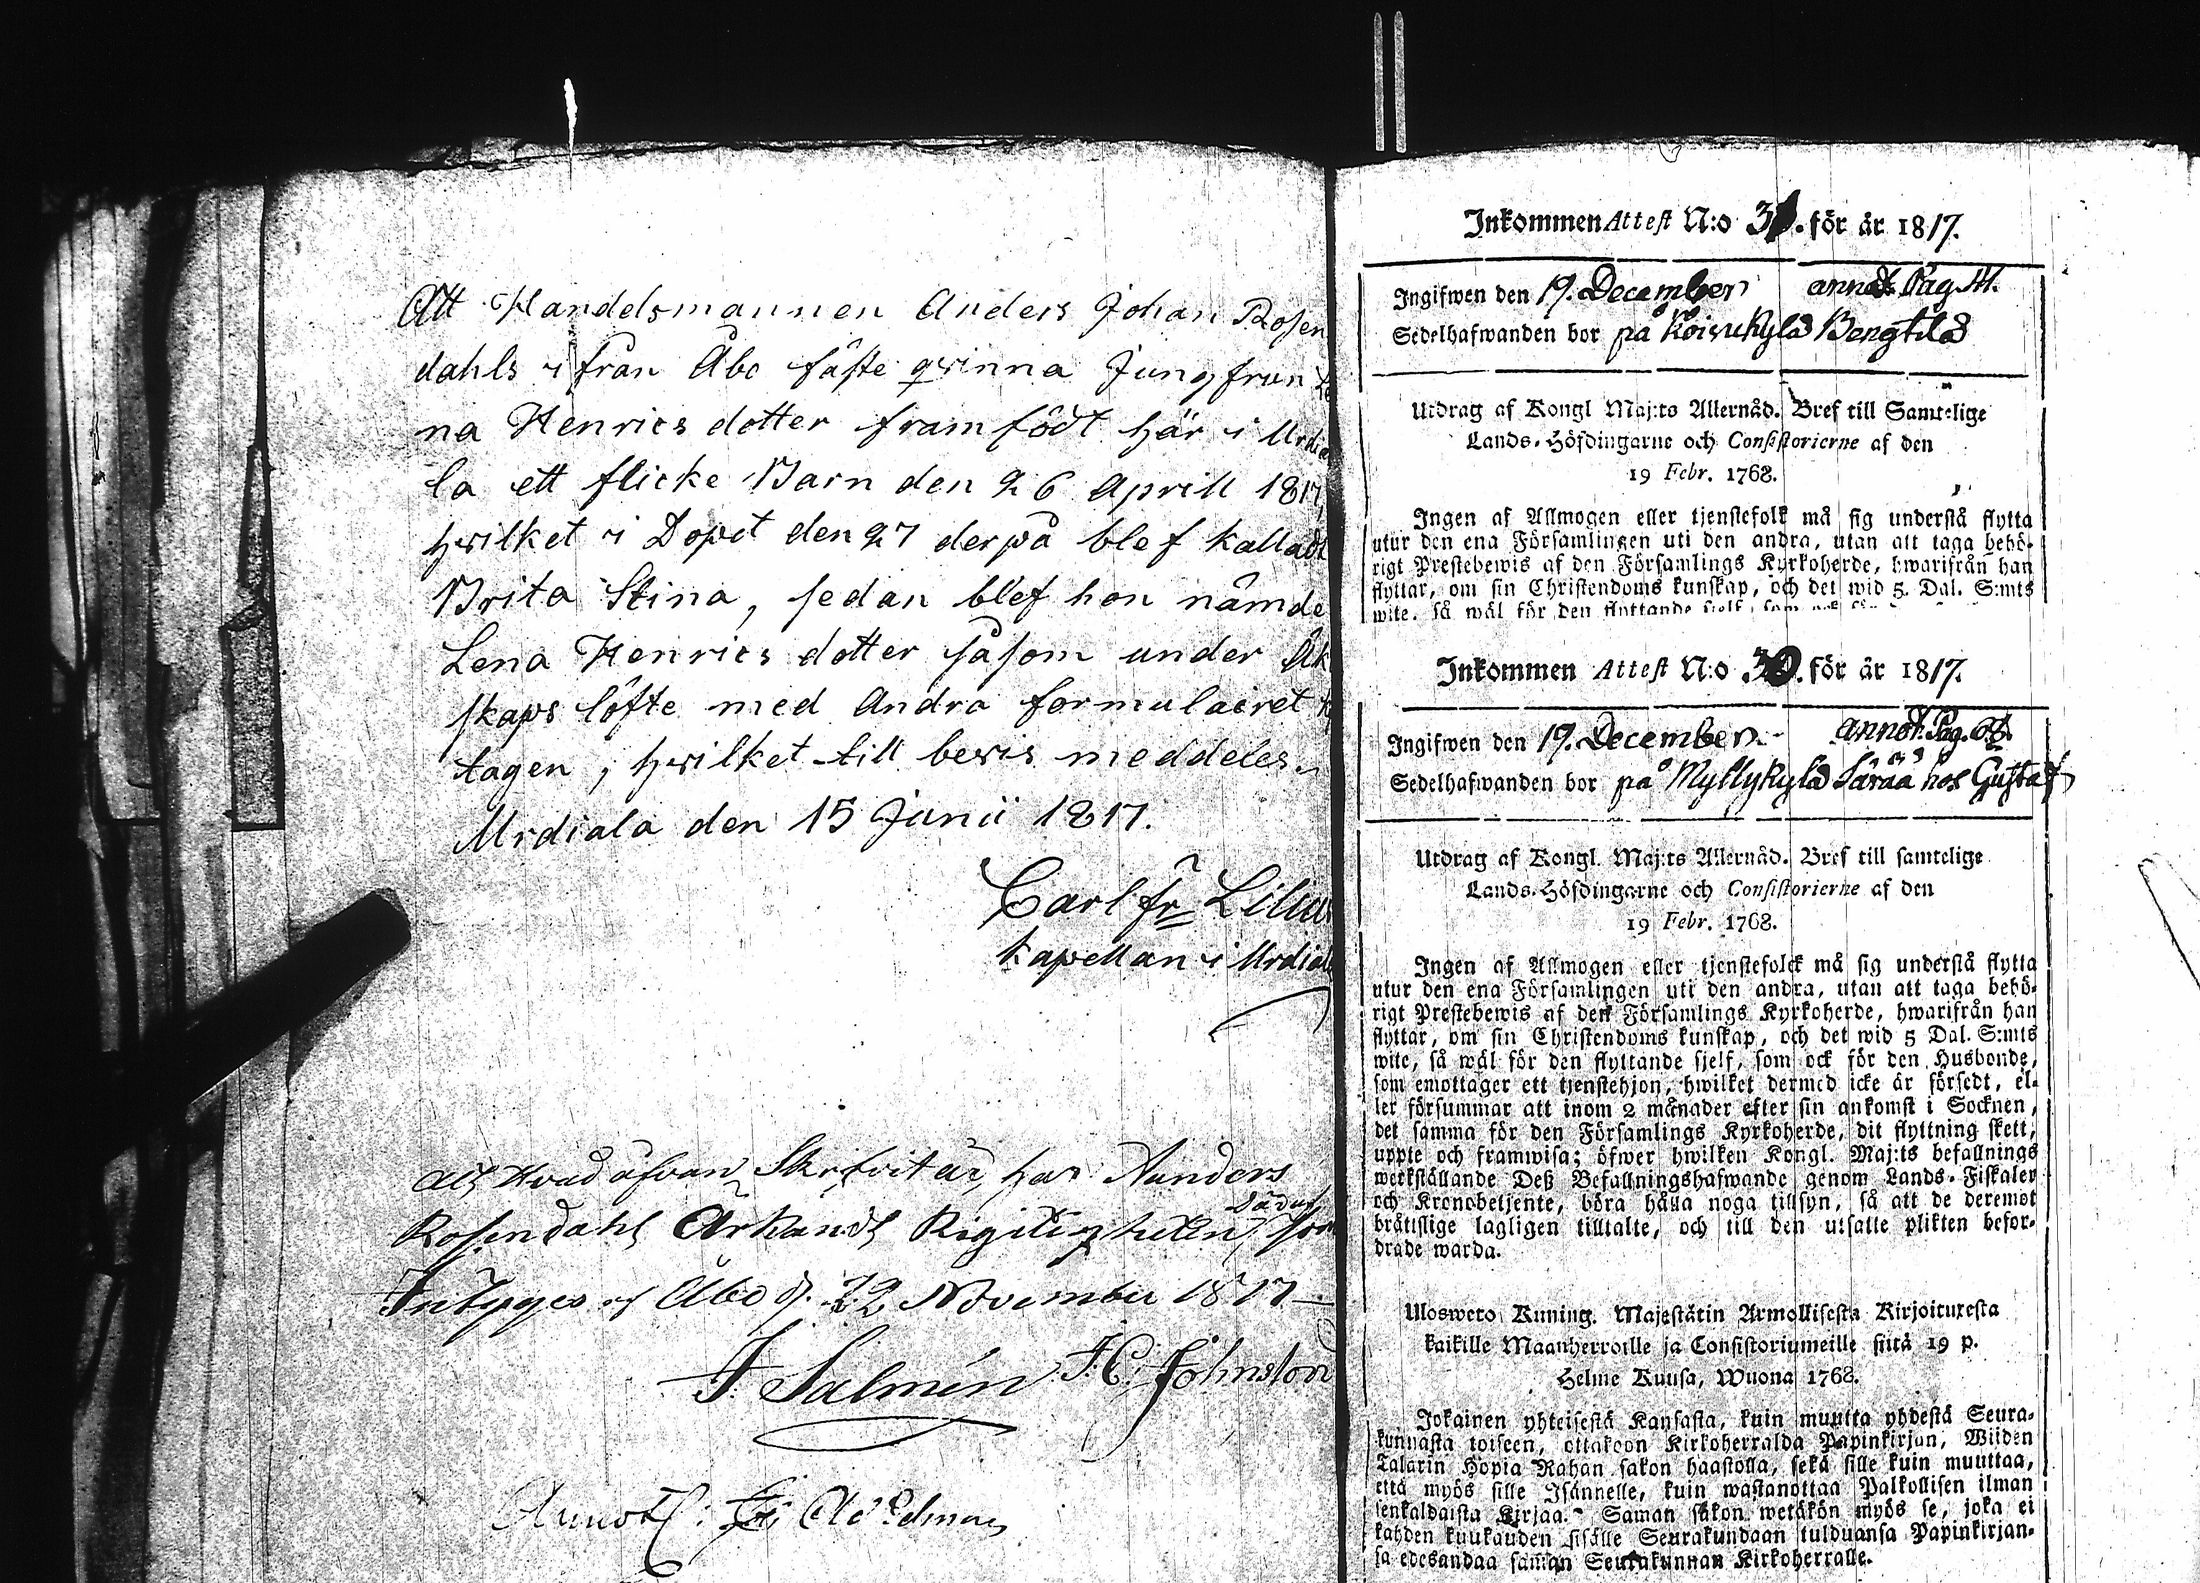 Att Handelsmannen Anders Johan Rosen
dahls ifrån Åbo fäste qvinna Jungfrun
na Henrics dotter framfödt här i Urdia
la ett flicke Barn den 26 Aprill 1817,
hvilket i Dopet den 27 derpå blef kalladt
Brita Stina, sedan blef hon nämde
Lena Henrics dotter såsom under Äk
skaps löfte med Andra formulairet
tagen, hvilket till bevis meddeles.
Urdiala den 15 Junii 1817.
Carl Fr Lilius
Kapellan i Urdiala
att Hvad ofvan Skrifvit är, har Anders
Rosendahl Ärkandt Rigtigheten, som
Intygas af Åbo d. 22 November 1817
J. Salmén J. C. Johnston
Inkommen Attest N:o 31. för år 1817.
Ingifwen den 19. December annot Pag.
Sedelhafwanden bor på Koivukylä Bengtilä
Utdrag af Kongl Maj:ts Allernåd. Bref till Samtelige
Lands-Höfdingarne och Consistorierne af den
19 Febr. 1768.
Ingen af Allmogen eller tjenstefolk må sig understå flytta
utur den ena Församlingen uti den andra, utan att taga behö-
rigt Prestebewis af den Församlings Kyrkoherde, hwarifrån han
flyttar, om sin Christendoms kunskap, och det wid 5. Dal. S:mts
wite, så wäl för den flyttande sjelf, som ock för
Inkommen Attest N:o 30. för år 1817.
Ingifwen den 19. December annot. Pag.
Sedelhafwanden bor på Myllykylä Särää hos Gustaf
Utdrag af Kongl. Maj:ts Allernåd. Bref till samtelige
Lands-Höfdingarne och Consistorierne af den
19 Febr. 1768.
Ingen af Allmogen eller tjenstefolck må sig understå flytta
utur den ena Församlingen uti den andra, utan att taga behö-
rigt Prestebewis af den Församlings Kyrkoherde, hwarifrån han
flyttar, om sin Christendoms kunskap, och det wid 5 Dal. S:mts
wite, så wäl för den flyttande sjelf, som ock för den Husbonde,
som emottager ett tjenstehjon, hwilket dermed icke är försedt, el-
ler försummar att inom 2 månader efter sin ankomst i Socknen,
det samma för den Församlings Kyrkoherde, dit flyttning skett,
uppte och framwisa; öfwer hwilken Kongl. Maj:ts befallnings
werkställande Deß Befallningshafwande genom Lands-Fiskaler
och Kronobetjente, böra hålla noga tillsyn, så att de deremot
bråttslige lagligen tilltalte, och till den utsatte plikten befor-
drade warda.
Uloswero Kuning. Majestätin Armollisesta Kirjoituxesta
kaikille Maanherroille ja Consistoriumeille siitä 19 p.
Helme Kuusa, Wuona 1768.
Jokainen yhteisestä Kansasta, kuin muutta yhdestä Seura-
kunnasta toiseen, ottakoon Kirkoherralda Papinkirjan, Wiiden
Talarin Hopia Rahan sakon haastolla, sekä sille kuin muuttaa,
että myös sille Isännelle, kuin wastanottaa Palkollisen ilman
senkaldaista Kirjaa. Saman sakon wetäkön myös se, joka ei
kahden kuukauden sisälle Seurakundaan tulduansa Papinkirjan-
sa edesandaa saman Seurakunnan Kirkoherralle.